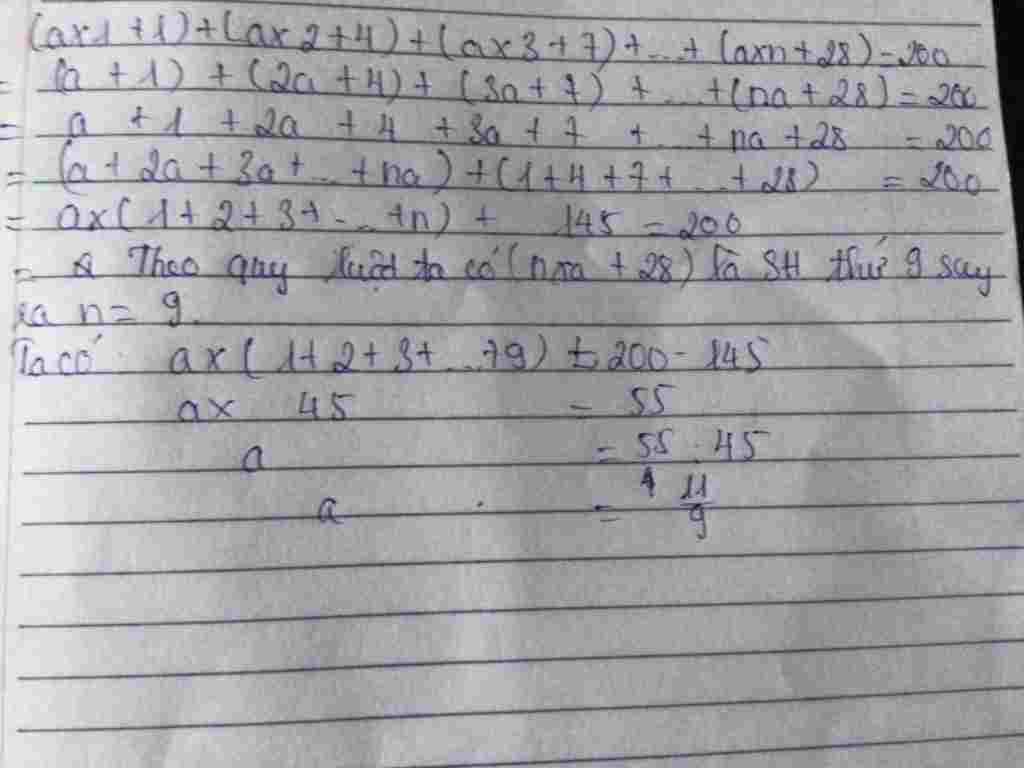 (ax1+1)+(ax2+4)+(ax3+7)+...+(axn+28)=200
= (a+1)+(2a+4)+(3a+7)+...+(na+28)=200
= a+1+2a+4+3a+7+...+na+28=200
= (a+2a+3a+...+na)+(1+4+7+...+28)=200
= ax(1+2+3+...+n)+145=200
= Theo quy luật ta có (nxa+28) là SH thứ 9 suy
ra n=9.
Ta có: ax(1+2+3+...+9)=200-145
ax 45 = 55
a = 55:45
a = 11/9